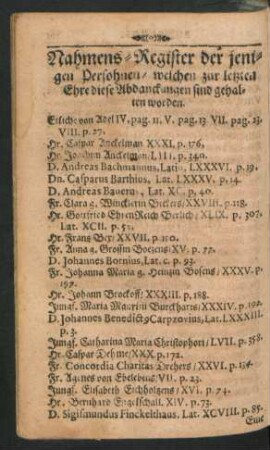 Nahmens-Register der jeni-
gen Persohnen/ welchen zur letzten
Ehre diese Abdanckungen sind gehal-
ten worden.
Etliche von Adel IV. pag. 11. V. pag. 13. VII. pag. 23.
VIII. p. 27.
Hr. Caspar Anckelman XXXI. p. 176.
Hr. Joachim Anckelman LIII. p. 340.
D. Andreas Bachmannus, Lat. LXXXVI. p. 19.
Dn. Casparus Barthius, Lat. LXXXV. p. 14.
D. Andreas Bauerus, Lat. XC. p. 40.
Fr. Clara g. Wincklerin Beckers/ XXVIII. p. 118.
Hr. Gottfried Ehren Reich Berlich/ XLIX. p. 307.
Lat. XCII. p. 52.
Hr. Frantz Bex/ XXVII. p. 110.
Fr. Anna g. Grossin Boczens/ XV. p. 77.
D. Johannes Bornius, Lat. c. p. 93.
Fr. Johanna Maria g. Heintzin Bosens/ XXXV. p.
199.
Hr. Johann Brockoff/ XXXIII. p. 188.
Jungf. Maria Burckharts/ XXXIV. p. 190.
D. Johannes Benedict9 Carpzovius, Lat. LXXXIII.
p. 3.
Jungf. Catharina Maria Christophori/ LVII. p. 358.
Hr. Caspar Dehme/ XXX. p. 172.
Fr. Concordia Charitas Drehers/ XXVI. p. 134.
Fr. Agnes von Ebeleben/ VII. p. 23.
Jungf. Elisabeth Eichholtzens/ XVI. p. 74.
Hr. Bernhard Engelschall. XIV. p. 73.
D. Sigismundus Finckelthaus. Lat. XCVIII. p. 85.